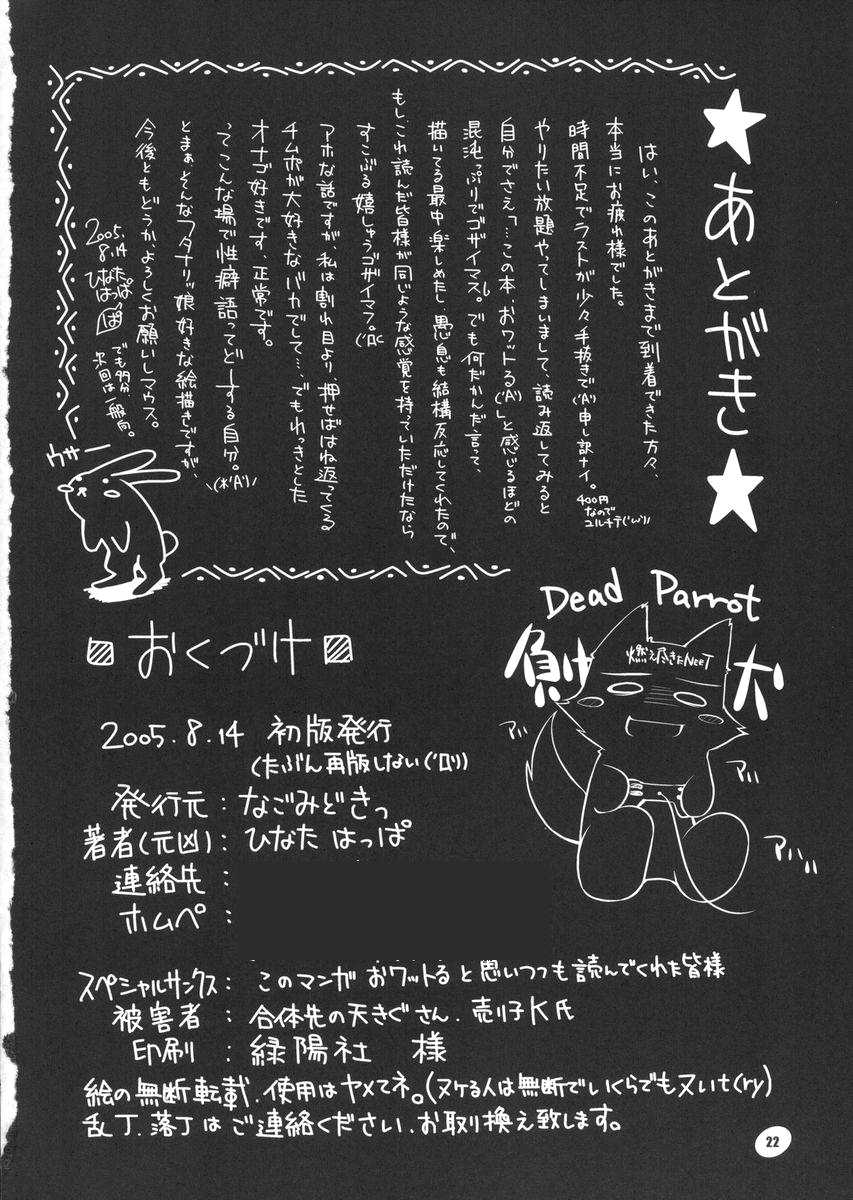 ★あとがき★
はい、このあとがきまで到着できた方々、
本当にお疲れ様でした。
時間不足でラストが少々手抜きで('A`)申し訳ナイ。
400円
なので
ユルチテ('ω`)ﾉ
やりたい放題やってしまいまして、読み返してみると
自分でさえ「…この本、おワットる('A`)」と感じるほどの
混沌っぷりでゴザイマス。でも何だかんだ言って、
描いてる最中楽しめたし、愚息も結構反応してくれたので、
もし、これ読んだ皆様が同じような感覚を持っていただけたなら
すこぶる嬉しゅうゴザイマフ。
アホな話ですが、私は割れ目より、押せばはね返ってくる
チムポが大好きなバカでして…、でもれっきとした
オナゴ好きです、正常です。
ってこんな場で性癖語ってどーする自分。
とまぁ、そんなフタナリッ娘好きな絵描きですが、
今後ともどうか、よろしくお願いしマウス。
2005.
8.14
ひなた
はっぱ
ぱ
でも多分、
次回は一般向。
ウサー
Dead Parrot
負け犬
燃え尽きたNEET
アハ
アハ
アハハ
おくづけ
2005.8.14 初版発行
(たぶん再版しない('ロ`))
発行元：なごみどきっ
著者(元凶)：ひなた はっぱ
連絡先：
ホムペ：
スペシャルサンクス：このマンガ おワットると思いつつも読んでくれた皆様
被害者：合体先の天きぐさん、売り子K氏
印刷：緑陽社 様
絵の無断転載、使用はヤメてネ。(ヌケる人は無断でいくらでもヌいt(ry)
乱丁、落丁はご連絡ください、お取り換え致します。
22